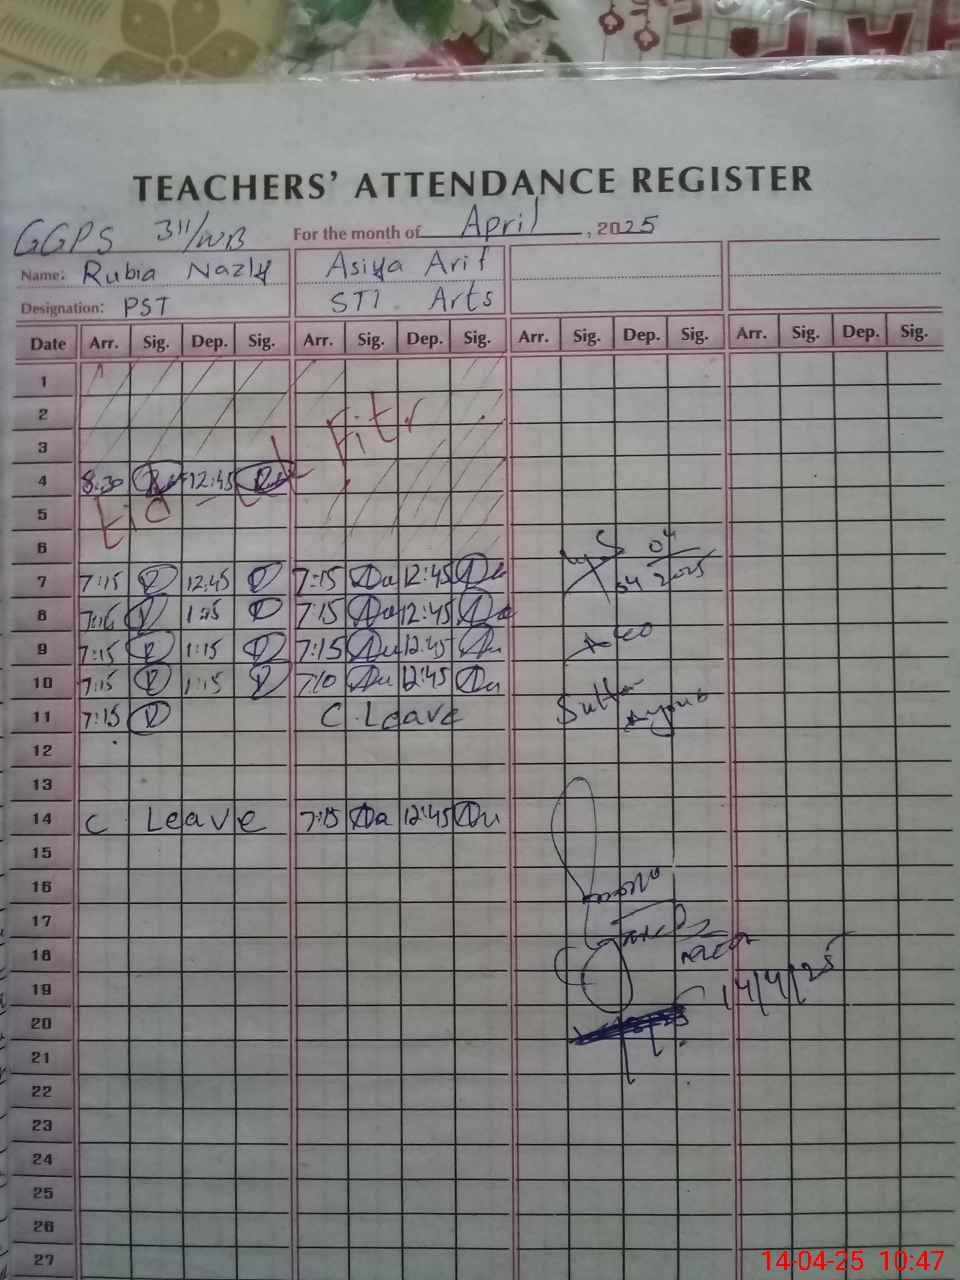 TEACHERS' ATTENDANCE REGISTER
GGPS 311/WB For the month of April, 2025
Name: Rubia Nazly Asiya Arif
Designation: PST STI. Arts
Date Arr. Sig. Dep. Sig. Arr. Sig. Dep. Sig. Arr. Sig. Dep. Sig. Arr. Sig. Dep. Sig.
1
2
3
4 8:30 12:45
Eid ul Fitr
5
6
7 7:15 12:45 7:15 12:45
04
04 2025
8 1:15 7:15 12:45
9 7:15 1:15 7:15 12:45
10 7:15 1:15 7:10 12:45
11 7:15 C. Leave
12
13
14 C Leave 7:15 12:45
15
16
17
18
19 14/4/25
20
21
22
23
24
25
26
27
14-04-25 10:47